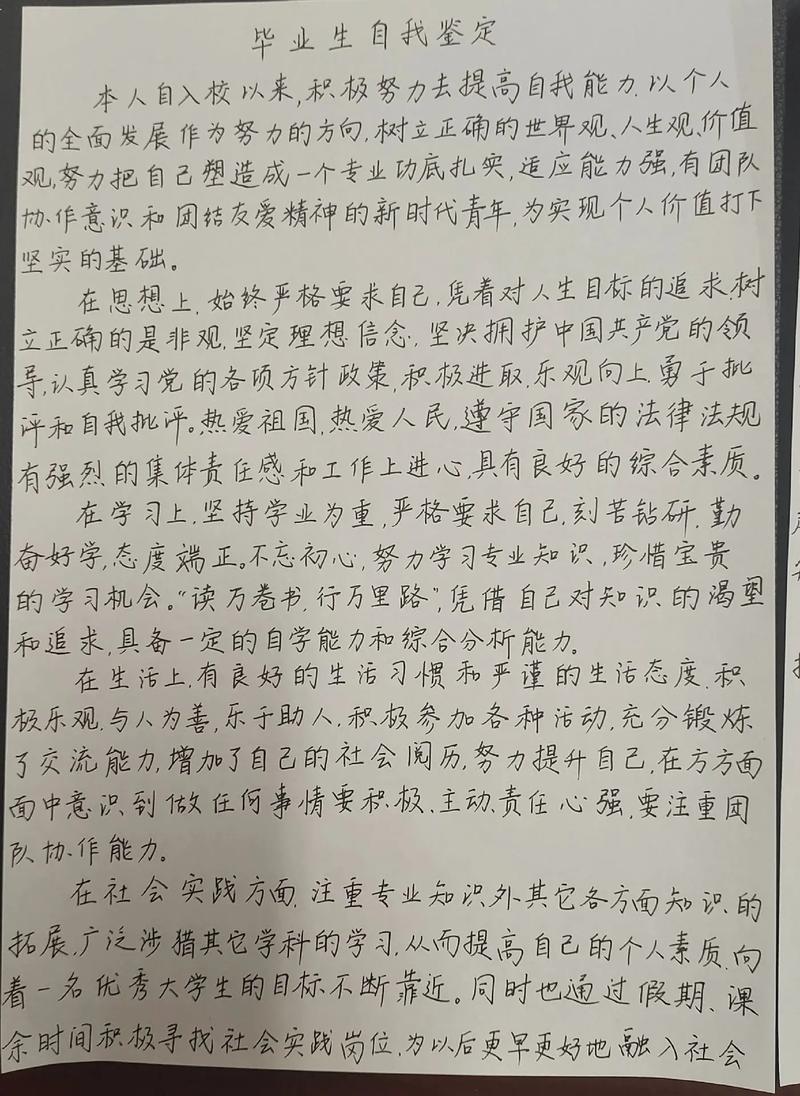 毕业生自我鉴定
本人自入校以来,积极努力去提高自我能力.以个人
的全面发展作为努力的方向,树立正确的世界观、人生观、价值
观,努力把自己塑造成一个专业功底扎实,适应能力强,有团队
协作意识和团结友爱精神的新时代青年,为实现个人价值打下
坚实的基础。
在思想上,始终严格要求自己,凭着对人生目标的追求,树
立正确的是非观,坚定理想信念,坚决拥护中国共产党的领
导,认真学习党的各项方针政策,积极进取,乐观向上,勇于批
评和自我批评。热爱祖国,热爱人民,遵守国家的法律法规
有强烈的集体责任感和工作上进心,具有良好的综合素质。
在学习上,坚持学业为重,严格要求自己,刻苦钻研,勤
奋好学,态度端正。不忘初心,努力学习专业知识,珍惜宝贵
的学习机会。“读万卷书,行万里路”,凭借自己对知识的渴望
和追求,具备一定的自学能力和综合分析能力。
在生活上,有良好的生活习惯和严谨的生活态度,积
极乐观,与人为善,乐于助人,积极参加各种活动,充分锻炼
了交流能力,增加了自己的社会阅历,努力提升自己,在方方面
面中意识到做任何事情要积极、主动、责任心强,要注重团
队协作能力。
在社会实践方面,注重专业知识外其它各方面知识的
拓展,广泛涉猎其它学科的学习,从而提高自己的个人素质,向
着一名优秀大学生的目标不断靠近。同时也通过假期、课
余时间积极寻找社会实践岗位,为以后更早更好地融入社会